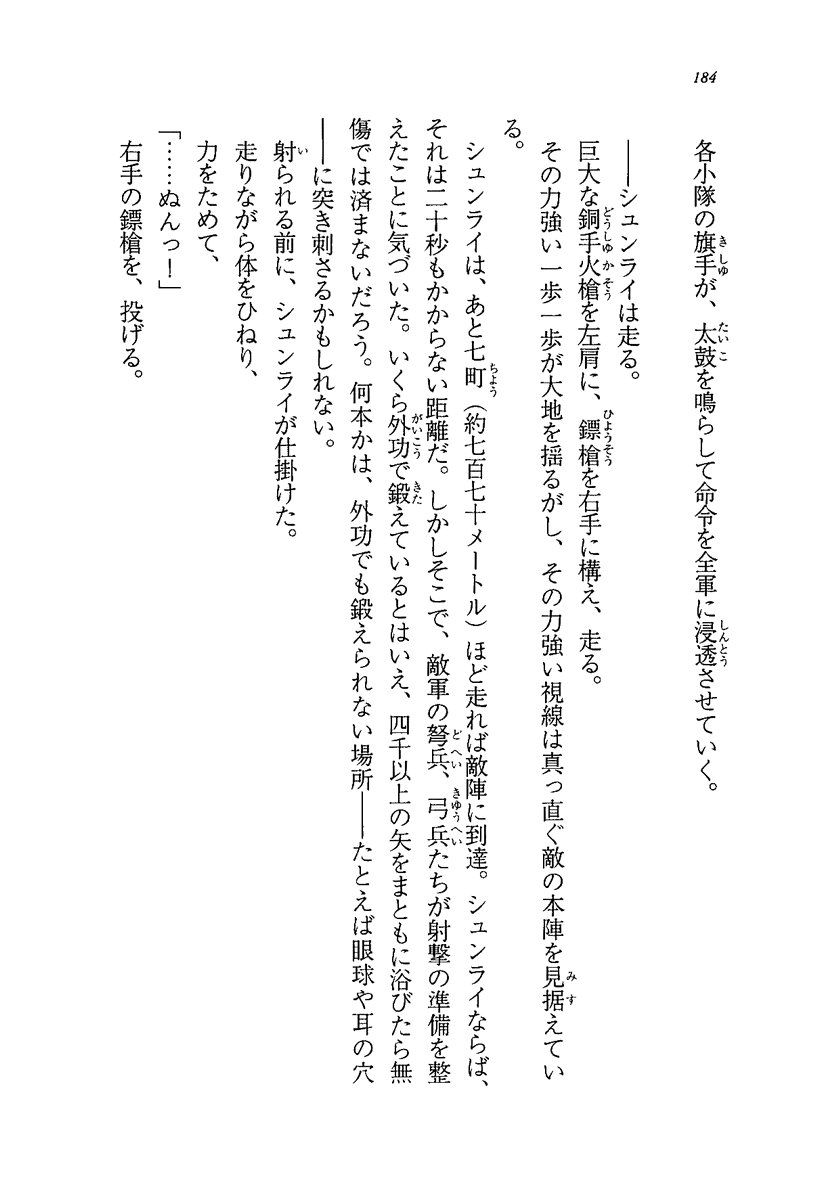 184
各小隊の旗手が、太鼓を鳴らして命令を全軍に浸透させていく。
――シュンライは走る。
巨大な銅手火槍を左肩に、鏢槍を右手に構え、走る。
その力強い一歩一歩が大地を揺るがし、その力強い視線は真っ直ぐ敵の本陣を見据えてい
る。
シュンライは、あと七町（約七百七十メートル）ほど走れば敵陣に到達。シュンライならば、
それは二十秒もかからない距離だ。しかしそこで、敵軍の弩兵、弓兵たちが射撃の準備を整
えたことに気づいた。いくら外功で鍛えているとはいえ、四千以上の矢をまともに浴びたら無
傷では済まないだろう。何本かは、外功でも鍛えられない場所――たとえば眼球や耳の穴
――に突き刺さるかもしれない。
射られる前に、シュンライが仕掛けた。
走りながら体をひねり、
力をためて、
「……ぬんっ！」
右手の鏢槍を、投げる。